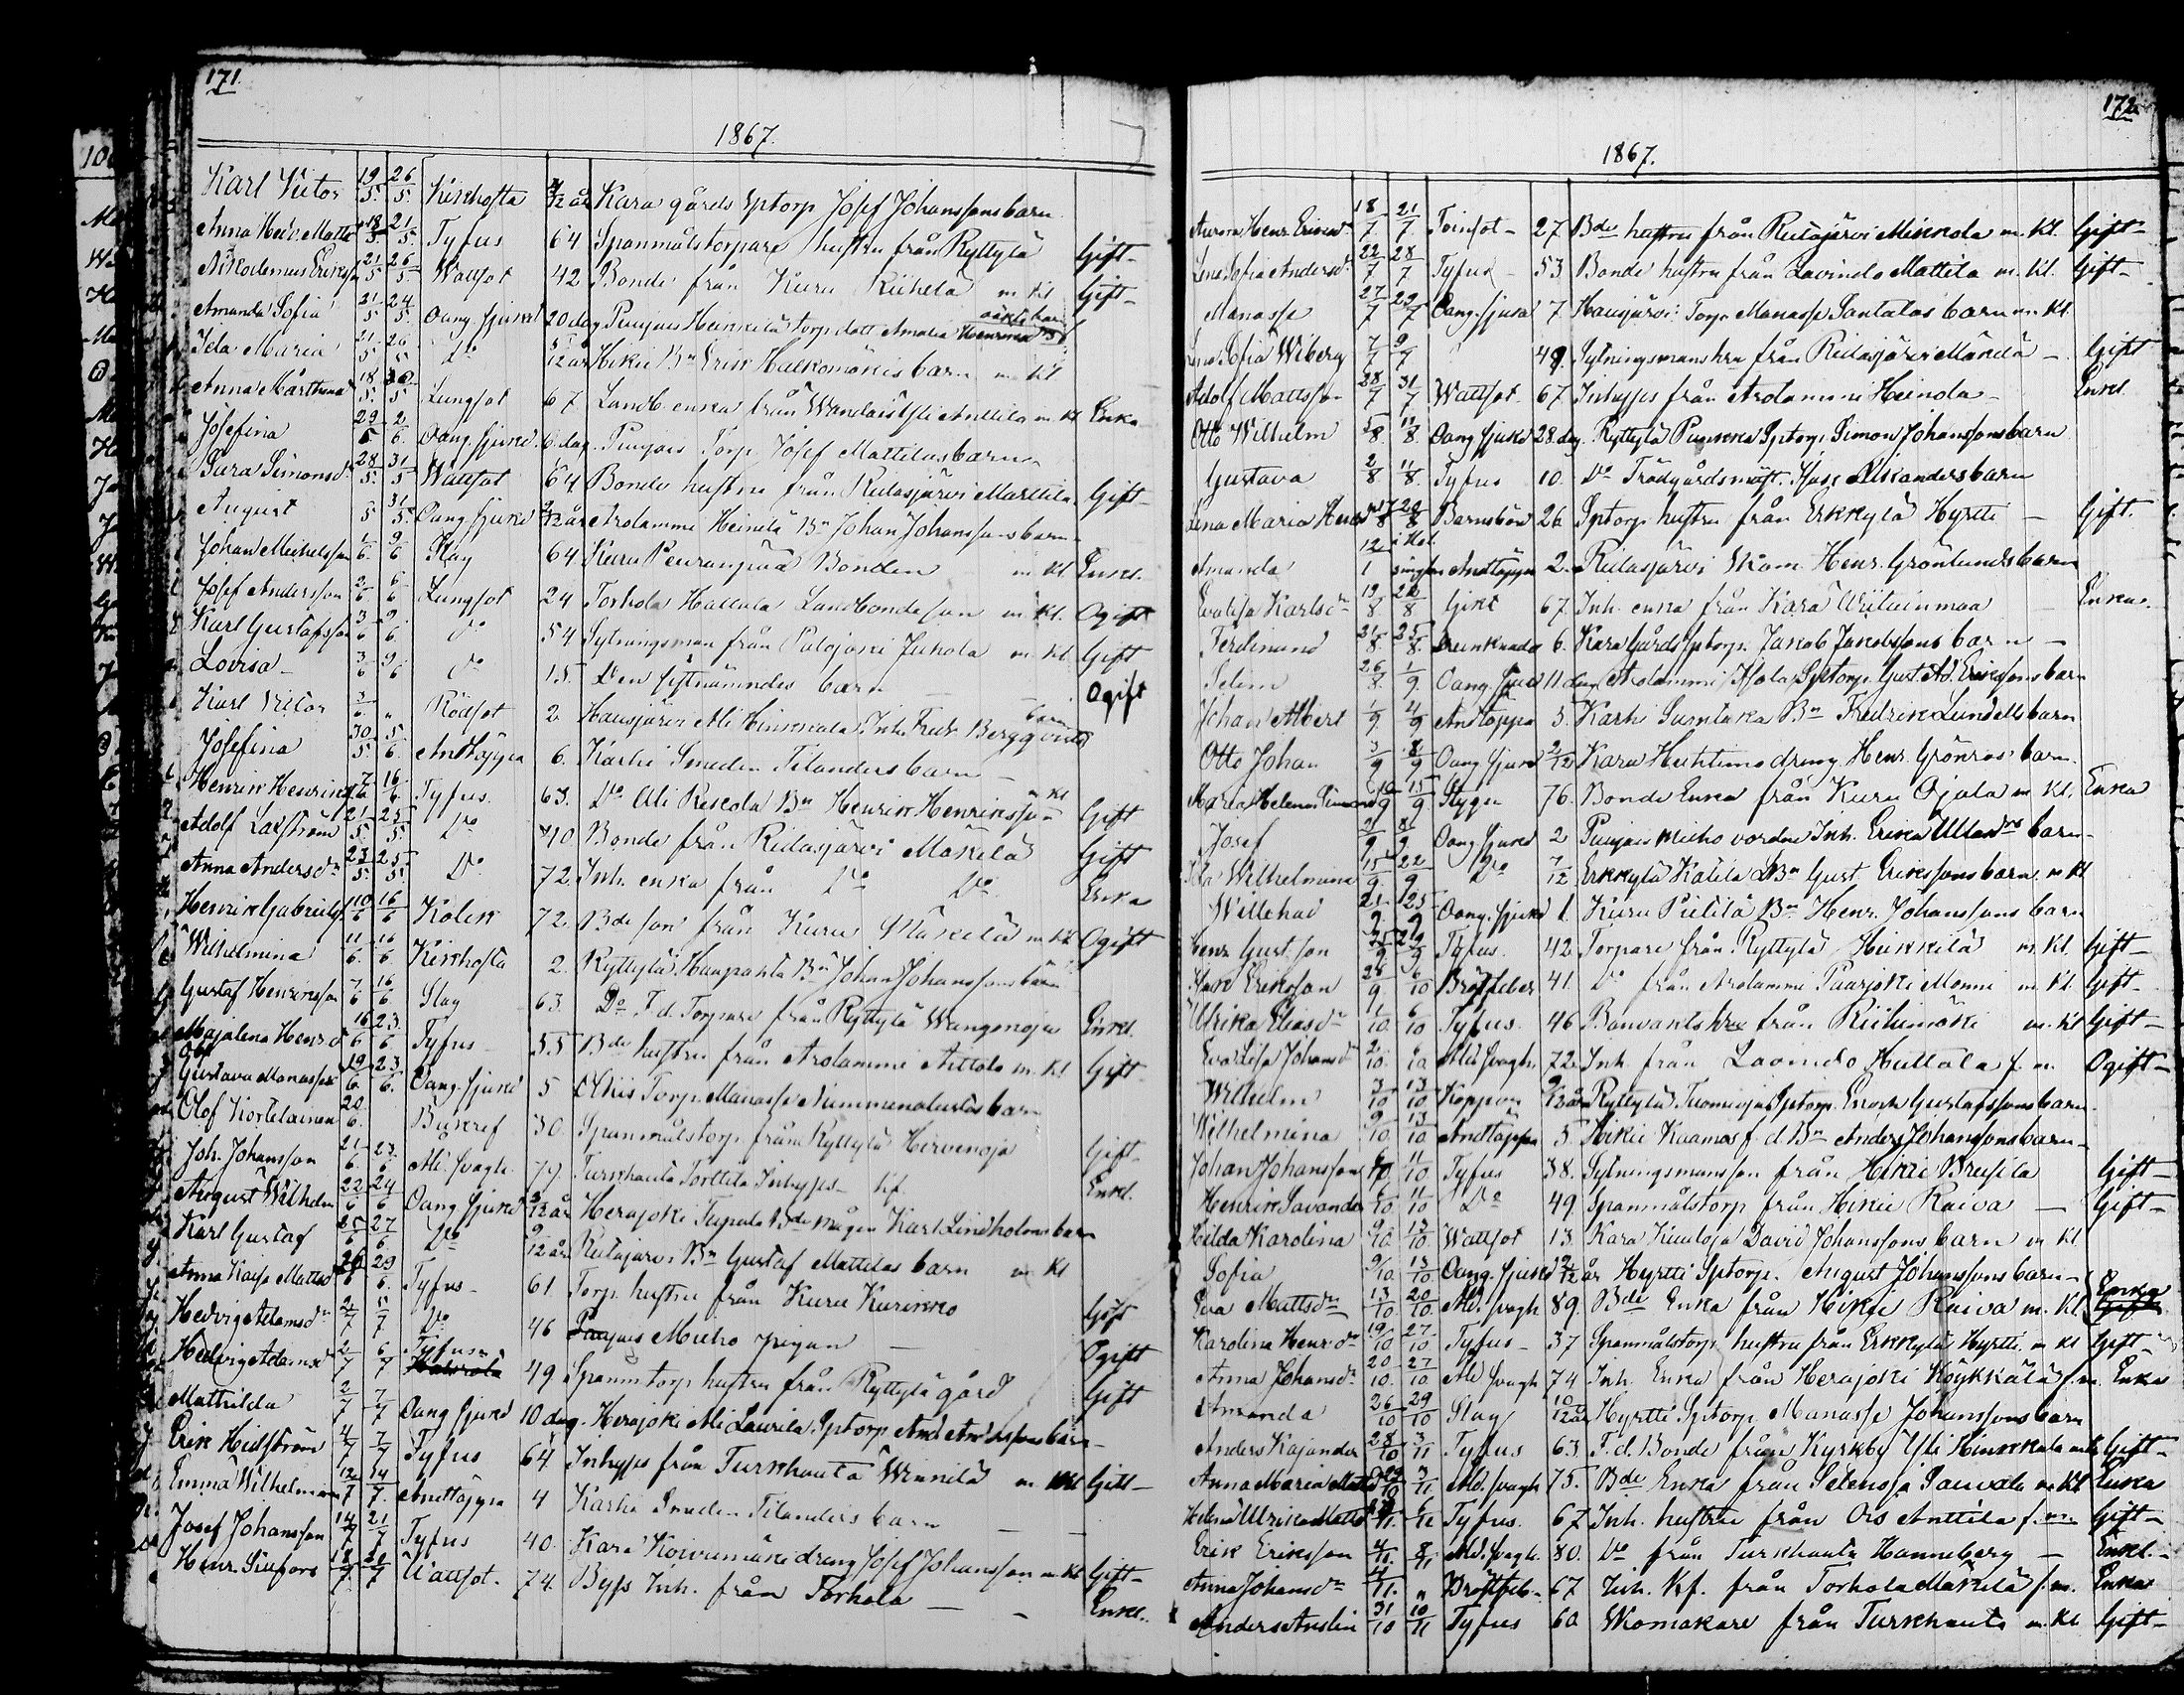 171.
1867.
Karl Victor 19/5. 26/5. Kikhosta /12 år Kara gårds Sptorp Josef Johanssons barn
Anna Hedv. Matts 18/5. 21/5. Tyfus 64 Spanmålstorpare hustru från Ryttylä Gift
Nikodemus Eriks 21/5 26/5. Wattsot 42 Bonde från Kuru Riihelä m Kl Gift
Amanda Sofia 21/5 24/5. Oang. sjukd 20 dag Punjais Heinkilä torp. dott Amalia Henriksd oäkta barn
Ida Maria 21/5 26/5 Do /12 år Hikiä Bn Erik Halkomäkis barn m Kl
Anna Mårthensd 18/5. /5 Lungsot 67 Landb. enka från Wandais Yli Anttila m. Kl Enka
Josefina 29/5 2/6. Oang. sjukd. 6 dag. Punjais Torp Josef Mattilas barn
Sara Simonsd 28/5. 31/5 Wattsot 64 Bonde hustru från Ridasjärvi Marttila Gift
August 5 31/5. Oang sjukd /12 år Arolammi Heinilä Bn Johan Johanssons barn
Johan Michelsson 1/6. 9/6 Slag 64 Kuru Peuranpää Bonden m Kl Enkl.
Josef Andersson 2/6 6/6 Lungsot 24 Torhola Hallula Landbondeson m Kl. Ogift
Karl Gustafsson 3/6 9/6. Do 54 Sytningsman från Palojoki Juhola m Kl Gift
Lovisa 3/6 9/6 Do 15. Den sistnämndes barn Ogift
Karl Victor 3/6. " Rödsot 2. Hausjärvi Ali Hinkkala Inh. Fredr Bergqvists barn
Josefina 30/5 5/6. Andtäppa 6. Karhi Smeden Tilanders barn
Henrik Henriks 7/6 16/6. Tyfus. 63. Do Ali Rekola Bn Henrik Henriksson m Kl Gift
Adolf Laxström 21/5. 25/5 Do 40 Bonde från Ridasjärvi Mäkelä Gift
Anna Andersdr 23/5. 25/5 Do 72. Inh. enka från Do Do Enka
Henrik Gabrielss 10/6 16/6 Kolik 72. Bde son från Kuru Mäkelä m Kl Ogift
Wilhelmina 11/6. 16/6 Kikhosta 2. Ryttylä Haapahta Bn Johan Johanssons barn
Gustaf Henriksson 7/6 16/6 Slag 63. Do F.d. Torpare från Ryttylä Wangonoja Enkl.
Majalena Henrsd 16/6 23/6 Tyfus 55 Bde hustru från Arolammi Anttola m. Kl Gift
Gustava Manasse 19/6. 23/6. Oang. sjukd 5 Torp. Manasse Nummenalustas barn
Olof Kortelainen 20/6. Bukref 30 Spanmålstorp. från Ryttylä Hervenoja Gift
Joh. Johansson 21/6. 23/6. Ald. svagh. 79. Turkhauta Torttila Inhyses Enkl.
August Wilhelm 22/6 24/6 Oang sjukd /12 år Herajoki Tupala Bde mågen Karl Lindholms barn
Karl Gustaf 25/6 27/6 Do 9/12 år Ridasjärvi Bn Gustaf Mattilas barn m Kl
Anna Kaisa Mattsd 26/6 29/6 Tyfus 61 Torp. hustru från Kuru Kurikko Gift
Hedvig Adamsdr 2/7 5/7 Do 46 Punjais Mieho pigan Ogift
Hedvig Adamsd 2/7 6/7 Tyfus 49 Spanm torp hustru från Ryttylä gård Gift
Mathilda 2/7 7/7 Oang sjukd 10 dag. Herajoki Ali Laurila Sptorp And. Anderssons barn
Erik Hellström 4/7 7/7 Tyfus 64 Inhyses från Turkhauta Winnilä m Kl Gift
Emma Wilhelmina 12/7 14/7. Andtäppa 4 Karhi Smeden Tilanders barn
Josef Johansson 14/7 21/7 Tyfus 40. Kara Koivumäki dreng Josef Johansson m Kl Gift
Henr. Siufors 18/7 21/7 Wattsot. 74. Byss Inh. från Torhola Enkl.
172.
1867.
Aurora Henr. Eriksd 18/7 21/7. Tvinsot 27 Bde hustru från Ridasjärvi Mikkola m. Kl. Gift
Lena Sofia Andersd 22/7 28/7 Tyfus 53 Bonde hustru från Lavinto Mattila m. Kl. Gift
Manasse 27/7 29/7 Oang. sjukd 7. Hausjärvi Torp Manasse Santalas barn m. Kl.
Lena Sofia Wiberg 7/7 9/7 49. Sytningsmans hru från Ridasjärvi Mändä Gift
Adolf Mattsson 28/7 31/7 Wattsot. 67 Inhyses från Arolammi Heinola Enkl
Otto Wilhelm 5/8 11/8. Oang sjukd 28 dag. Ryttylä Punkka Sptorp Simon Johanssons barn
Gustava 2/8 11/8. Tyfus 10. Do Trädgårdsmäst. Isak Nikanders barn
Lena Maria Henrsd 17/8 20/8 Barnsbörd 26 Sptorp hustru från Erkkylä Hyrtti Gift.
Amanda 12/1 Andtäppa 2. Ridasjärvi Skom. Henr. Grönlunds barn
Evalisa Karlsdr 19/8 /8 Gikt 67. Inh. enka från Kara Uitainmaa Enka.
Ferdinand 21/8. 25/8. Drunknade 6. Kara Gårds Sptorp. Jakob Jakobssons barn
Selim 26/8. 1/9. Oang. sjukd 11 dag Arolammi Isola Sptorp. Gust Ad. Erikssons barn
Johan Albert 1/9. 4/9 Andtäppa 5. Karhi Suntuka Bn Fredrik Lundells barn
Otto Johan 3/9 8/9 Oang sjukd 2/12 Kara Huhtimo dreng Henr. Grönros barn
Maria Helena Simonsd 10/9 15/9 Stygn 76. Bonde Enka från Kuru Ojala m Kl. Enka
Josef 2/9 8/9 Oang sjukd 2 Punjais Mieho vordna Inh. Erika barn
Ida Wilhelmina 15/9. 22/9 Do 7/12 Erkkylä Katila Bn Gust. Erikssons barn m Kl
Willehad 21/9. 25/9 Oang. sjukd 1. Kuru Pietilä Bn Henr. Johanssons barn
Henr Gust. son 25/9 29/9 Tyfus. 42 Torpare från Ryttylä Heikkilä m. Kl. Gift
Eriksson 28/9 6/10 Bröstfeber 41. Do från Arolammi Paarjoki Monni m. Kl. Gift
Ulrika Eliasdr 1/10. 6/10 Tyfus. 46 Banvakts hru från Riihimäki m. Kl Gift
Eva Lisa Johansd 2/10. 6/10 Ald. svagh. 72. Inh. från Lavindo Huttala f. m. Ogift
Wilhelm 3/10 13/10 Koppor 9/12 år Ryttylä Tuomioja Sptorp. Enoch Gustafssons barn
Wilhelmina 9/10. 13/10 Andtäppa 5. Hikiä Kaamas f. d. Bn Anders Johanssons barn
Johan Johansson 6/10 11/10 Tyfus 38. Sytningsmansson från Hikiä Brusila Gift
Henrik Savander 6/10 11/10 Do 49. Spanmålstorp från Hikiä Raiva Gift
Hilda Karolina 9/10. 13/10. Wattsot 13 Kara Kuuloja David Johanssons barn m Kl
Sofia 9/10. 13/10 Oang. sjukd /12 år Hyrtti Sptorp. August Johanssons barn
Eva Mattsdr 13/10 20/10. Ald. svagh 89. Bde Enka från Hikiä Raiva m. Kl Enka
Karolina Henrdr 19/10 27/10 Tyfus 37 Spanmålstorp hustru från Erkkylä Hyrtti m Kl Gift
Anna Johansdr 20/10. 27/10 Ald svagh 74 Inh. Enka från Herajoki Köykkälä f. m. Enka
Amanda 26/10 29/10 Slag 10/12 år Hyrtti Sptorp Manasse Johanssons barn
Anders Kajander 28/10 3/11 Tyfus 63. F. d. Bonde från Kyrkby Yli Hinkkala m Kl Gift
Anna Maria Matts /10 3/11 Ald. svagh 75. Bde Enka från Selensjä Pauvola m. Kl Enka
Helena Ulrika Matts /11. 6/11 Tyfus. 67 Inh. hustru från Ois Anttila f. m. Gift
Erik Eriksson 4/11. 8/11 Ald. svagh. 80. Do från Turkhauta Hanneberg Enkl.
Anna Johansdr 4/11. " Bröstfeb. 67 Inh. från Torhola Mäkilä f. m. Enka
Anders Anslin 31/10 10/11 Tyfus 60 Skomakare från Turkhauta m. Kl Gift